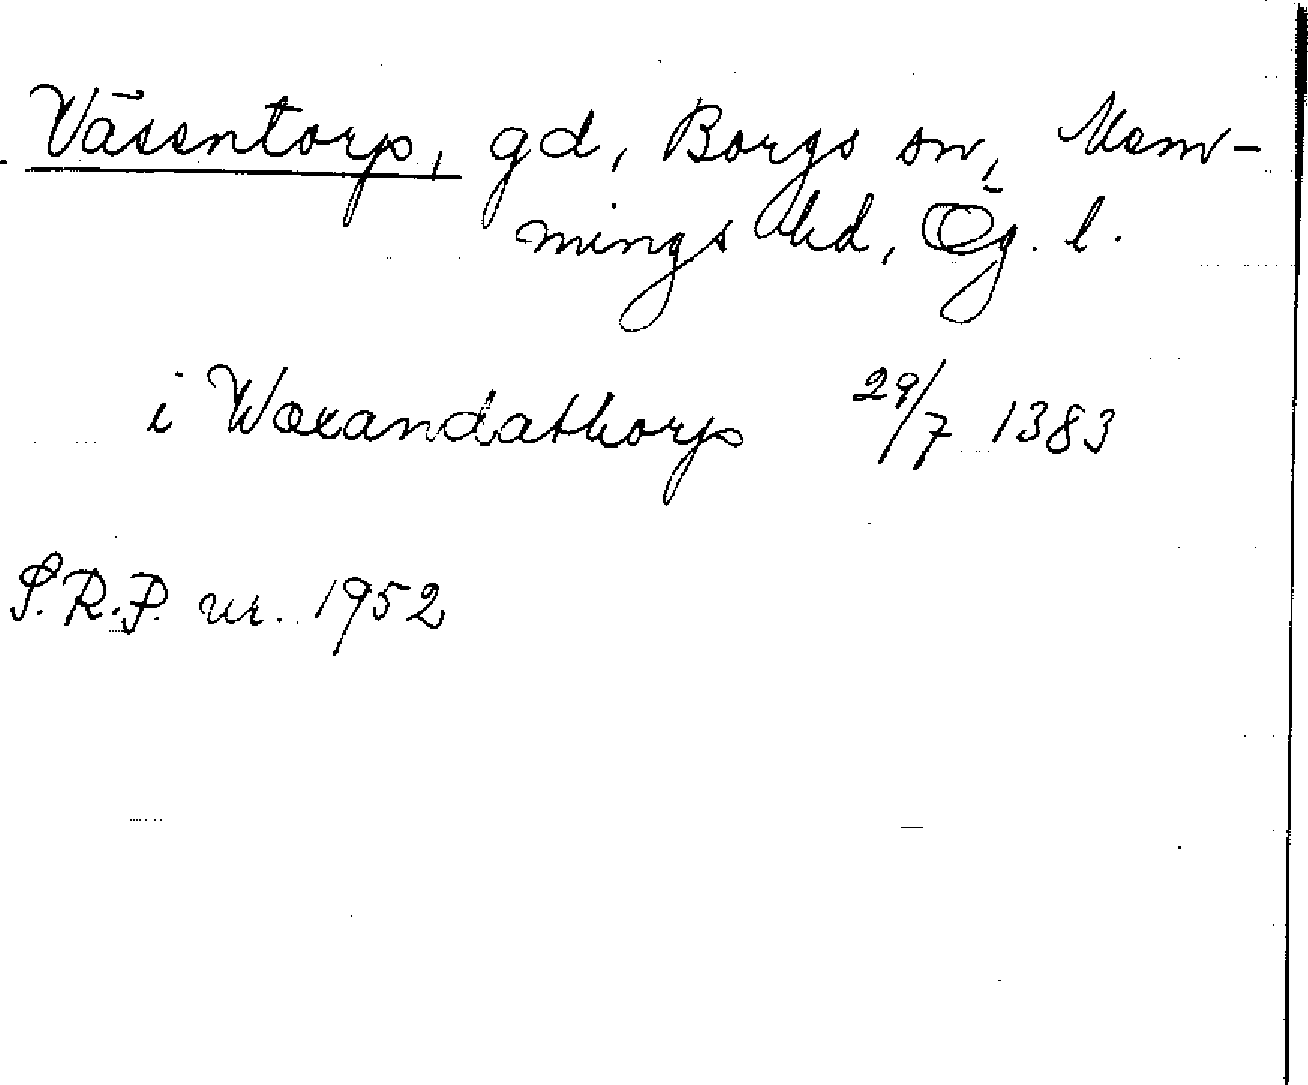 Vässntorp, gd, Borgs sn, Mem-
mings hd, Ög. l.
i Wæxandathorp 29/7 1383
S.R.P. nr. 1952